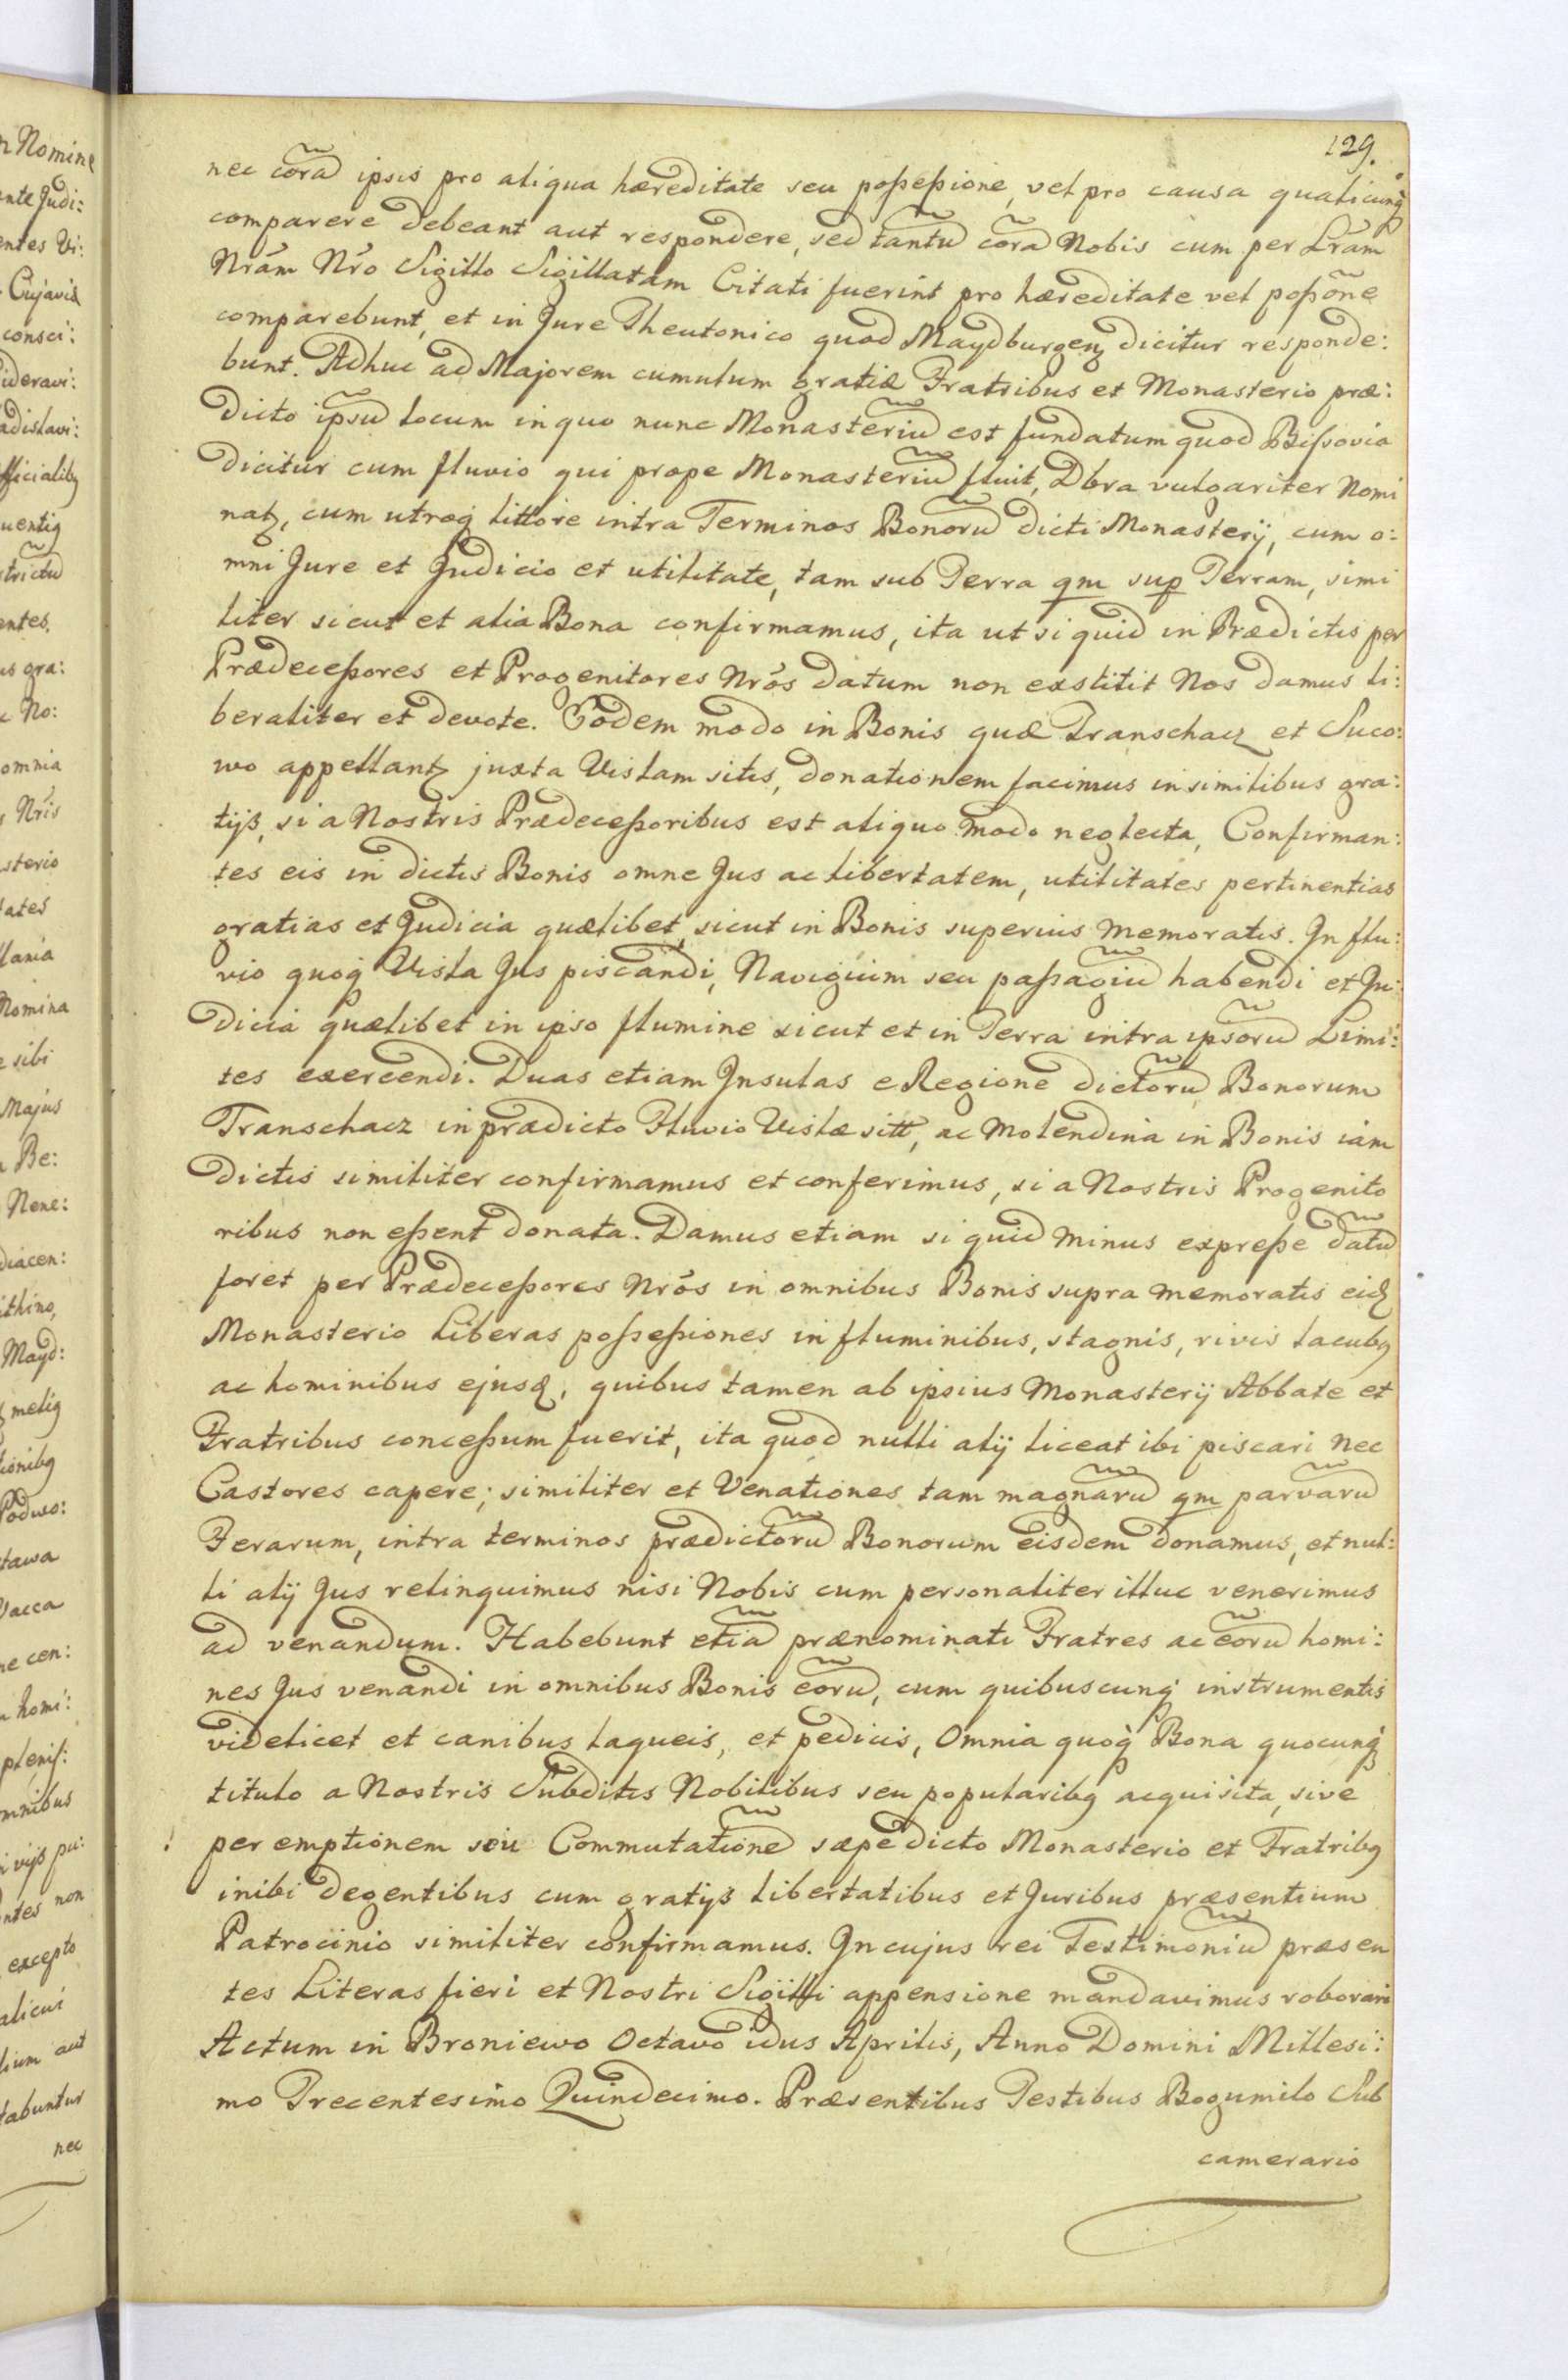 129.
nec corã ipsis pro aliqua hæreditate seu poßeßione, vel pro causa qualicunq̃
comparere debeant aut respondere, sed tantũ corã Nobis cum per Lrãm
Nrãm Nrõ Sigillo Sigillatam Citati fuerint pro hæreditate vel poßõne
comparebunt, et in Jure Theutonico quod Maydburgenȝ dicitur responde:
bunt. Adhuc ad Majorem cumulum gratiæ Fratribus et Monasterio præ:
dicto ipsũ locum in quo nunc Monasteriũ est fundatum quod Bißovia
dicitur cum fluvio qui prope Monasteriũ fluit, Dbra vulgariter Nomi
natȝ, cum utroq̃ littore intra Terminos Bonorũ dicti Monasterÿ, cum o:
mni Jure et Judicio et utilitate, tam sub Terra qm sup Terram, simi
liter sicut et alia Bona confirmamus, ita ut si quid in Prædictis per
Prædeceßores et Progenitores Nrõs datum non exstitit Nos damus li:
beraliter et devote. Eodem modo in Bonis quæ Transchacz et Suco:
wo appellantȝ juxta Vislam sitis, donationem facimus in similibus gra:
tijs, si a Nostris Prædeceßoribus est aliquo modo neglecta, Confirman:
tes eis in dictis Bonis omne Jus ac libertatem, utilitates pertinentias
gratias et Judicia quælibet, sicut in Bonis superius memoratis. In flu:
vio quoq̃ Visla Jus piscandi, Navigium seu paßagiũ habendi et Ju:
dicia quælibet in ipso flumine sicut et in Terra intra ipsorũ Limi:
tes exercendi. Duas etiam Insulas e Regione dictorũ Bonorum
Transchacz in prædicto Fluvio Vislæ sitt, ac Molendina in Bonis iam
dictis similiter confirmamus et conferimus, si a Nostris Progenito
ribus non eßent donata. Damus etiam si quid minus expreße datũ
foret per Prædeceßores Nrõs in omnibus Bonis supra memoratis eidȝ
Monasterio Liberas poßeßiones in fluminibus, stagnis, rivis lacubȝ
ac hominibus ejusdȝ, quibus tamen ab ipsius Monasterÿ Abbate et
Fratribus conceßum fuerit, ita quod nulli alÿ liceat ibi piscari nec
Castores capere; similiter et Venationes tam magnarũ qm parvarũ
Ferarum, intra terminos prædictorũ Bonorum eisdem donamus, et nul:
li alÿ Jus relinquimus nisi Nobis cum personaliter illuc venerimus
ad venandum. Habebunt etiã prænominati Fratres ac eorũ homi:
nes Jus venandi in omnibus Bonis eorũ, cum quibuscunq̃ instrumentis
videlicet et canibus laqueis, et pedicis, Omnia quoq̃ Bona quocunq̃
titulo a Nostris Subditis Nobilibus seu popularibȝ acquisita, sive
per emptionem seu Commutationẽ sæpe dicto Monasterio et Fratribȝ
inibi degentibus cum gratÿs libertatibus et Juribus præsentium
Patrocinio similiter confirmamus. In cujus rei Testimoniũ præsen
tes Literas fieri et Nostri Sigilli appensione mandavimus roborari
Actum in Broniewo Octavo idus Aprilis, Anno Domini Millesi:
mo Trecentesimo Quindecimo. Præsentibus Testibus Bogumilo Sub
camerario